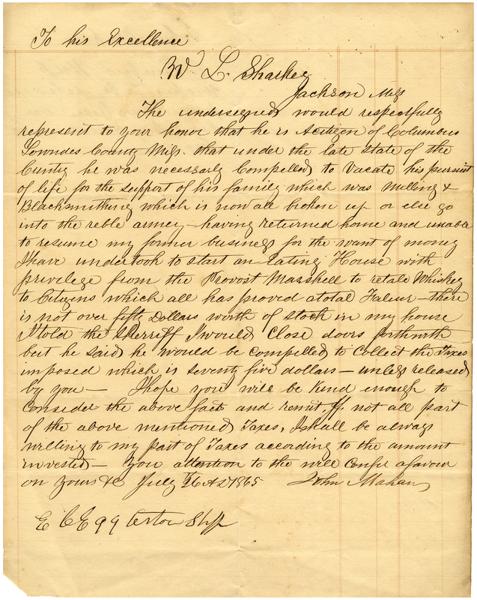 To his Excellence
W. L. Sharkey
Jackson Miss
The undersigned would respectfully
represent to your honor that he is a citizen of Columbus
Lowndes County Miss. that under the late State of the
Cuntry he was necessarly Compelled to Vacate his persuit
of life for the support of his family which was Milling &
Blacksmithing which is now all broken up or else go
into the reble armey - having returned home and unable
to resume my former business for the want of money
I have undertook to start an Eating House with
privilege from the Provost Marshell to retale Whiskey
to Citizens which all has proved a total Faleur - there
is not over fifty Dollars worth of stock in my house
I told the Sherriff I would Close doors forthwith
but he said he would be compelled to Collect the Taxes
imposed which is seventy five dollars - unless released
by you - I hope you will be kind enough to
Consider the above fact and remit if not all part
of the above mentioned Taxes, I shall be always
willing to my part of Taxes according to the amount
invested - Your attention to the will confer a favour
on yours &c July 26 AD 1865 John Mahan
E C Eggleston Shff